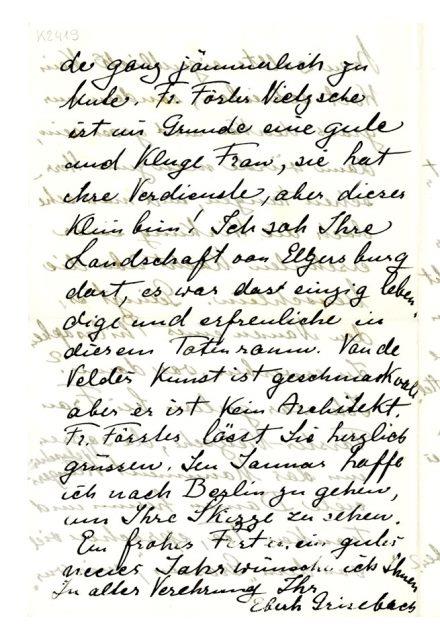 K2419
de ganz jämmerlich zu
Mute. Fr. Förster Nietzsche
ist im Grunde eine gute
und kluge Frau, sie hat
ihre Verdienste, aber dieser
Klimbim! Ich sah Ihre
Landschaft von Elgersburg
dort, es war das einzig leben-
dige und erfreuliche in
diesem Totenraum. Van de
Veldes Kunst ist geschmackvoll
aber er ist kein Architekt.
Fr. Förster lässt Sie herzlich
grüssen. Im Januar hoffe
ich nach Berlin zu gehen,
um Ihre Skizze zu sehen.
Ein frohes Fest u. ein gutes
neues Jahr wünsche ich Ihnen
In alter Verehrung Ihr
Eberh Grisebach